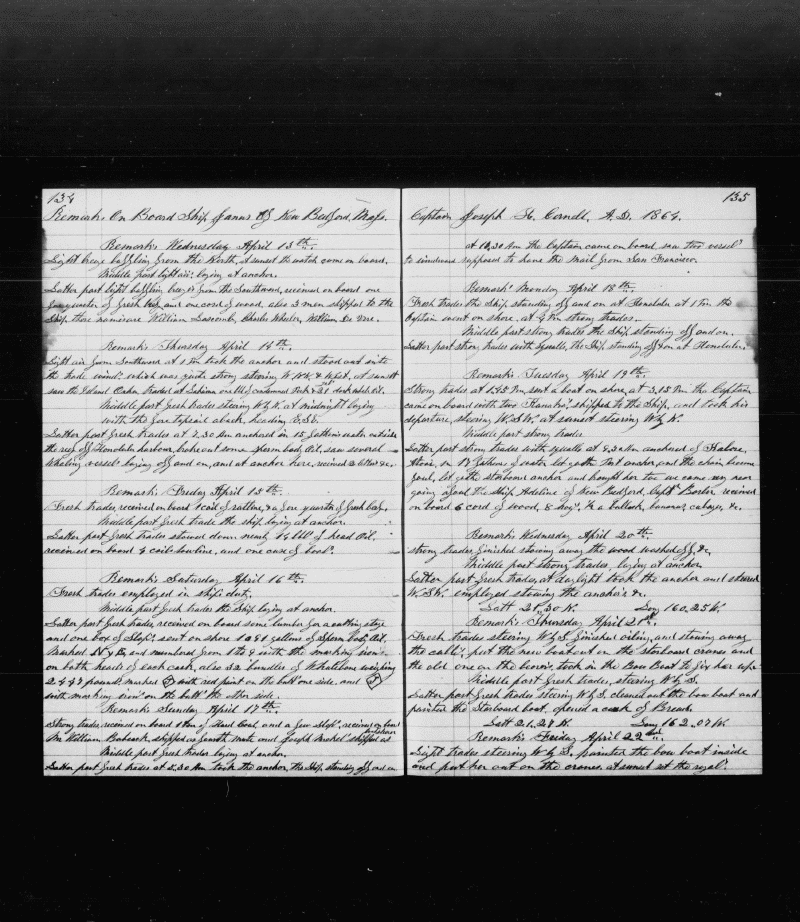 134
Remarks On Board Ship Janus Of New Bedford, Mass.
Remarks Wednesday April 13th.
Light breeze baffling from the North, at sunset the watch come on board.
Middle part light airs, laying at anchor.
Latter part light baffling breezes from the Southward, received on board one
fore quarter of fresh beef, and one cord of wood, also 3 men shipped to the
Ship, thare names are William Lascomb, Charles Wheeler, William De Vere.
Remarks Thursday April 14th.
Light air from Southward at 1 Pm took the anchor and stood out into
the trade winds, which was quite strong steering W.N.W. & West, at sunset
saw the Island Oahu
Middle part fresh trades steering W by N. at midnight laying
with the foretopsail aback, heading E.S.E.
Latter part fresh trades at 7.30 Am anchored in 15 fathoms water outside
the reef of Honolulu harbour, broke out some sperm body Oil, saw several
Whaling vessels laying off and on, and at anchor here, received
Remarks Friday April 15th.
Fresh trades, received on board 1 coil of ratline, & a fore quarter of fresh beef.
Middle part fresh trade the ship laying at anchor.
Latter part fresh trades stowed down nearly 16 bbls of head Oil,
received on board 4 coils towline, and one case of boots.
Remarks Saturday April 16th.
Fresh trades employed in ships duty.
Middle part fresh trades the ship laying at anchor.
Latter part fresh trades, received on board some lumber for a cutting stage
and one box of Slops, sent on shore gallons of Sperm body Oil,
Marked and numbered from 1 to 9 with the marking iron
on both heads of each cask, also 32 bundles of Whalebone weighing
2447 pounds marked with red paint on the butt one side, and
with marking iron on the butt the other side.
Remarks Sunday April 17th.
Strong trades, received on board 1 ton of Hard Coal, and a few Slops, receives on board
Mr William Babcock, shipped as fourth mate and Joseph shipped as
Middle part fresh trades laying at anchor.
Latter part fresh trades at 5.30 Am took the anchor, the Ship standing off and on
135
Captain Joseph H. Cornell, A.D. 1864.
at 10,30 Am the Captain came on board, saw two vessels
to windward supposed to have the mail from San Francisco.
Remarks Monday April 18th.
Fresh trades the Ship standing off and on at Honolulu at 1 Pm the
Captain went on shore, at 4 Pm strong trades.
Middle part strong trades the Ship standing off and on.
Latter part strong trades with squalls, the Ship standing off & on at Honolulu.
Remarks Tuesday April 19th.
Strong trades at 1.45 Pm, sent a boat on shore, at 3.15 Pm the Captain
came on board with two Kanakas, shipped to the Ship, and took his
departure steering W.S.W. at sunset steering W by N.
Middle part strong trades
Latter part strong trades with squalls at 8.30 Am anchored of
in 17 fathoms of water let go the Port anchor, and the chain become
foul, let go the starboard anchor and brought her too we came very near
going afoul the Ship Adeline of New Bedford, Capt Barber received
on board 6 cord of wood, 8 hogs, ½ a bullock, bananas, cabage, &c.
Remarks Wednesday April 20th.
strong trades, finished stowing away the wood washed off, &c.
Middle part strong trades, laying at anchor
Latter part fresh trades, at daylight took the anchor and steered
W.S.W. employed stowing the anchors &c.
Latt 21,30 N. Long 160,25 W.
Remarks Thursday April 21st.
Fresh trades steering W by S. finished oiling, and stowing away
the cables, put the new boat out on the starboard cranes and
the old one on the bearers, took in the Bow Boat to fix her up.
Middle part fresh trades, steering W by S.
Latter part fresh trades steering W by S. cleaned out the bow boat and
painted the Starboard boat, opened a cask of Bread.
Latt 21,27 N. Long 162,07 W.
Remarks Friday April 22nd.
Light trades steering W by S, painted the bow boat inside
and put her out on the cranes, at sunset set the royals.